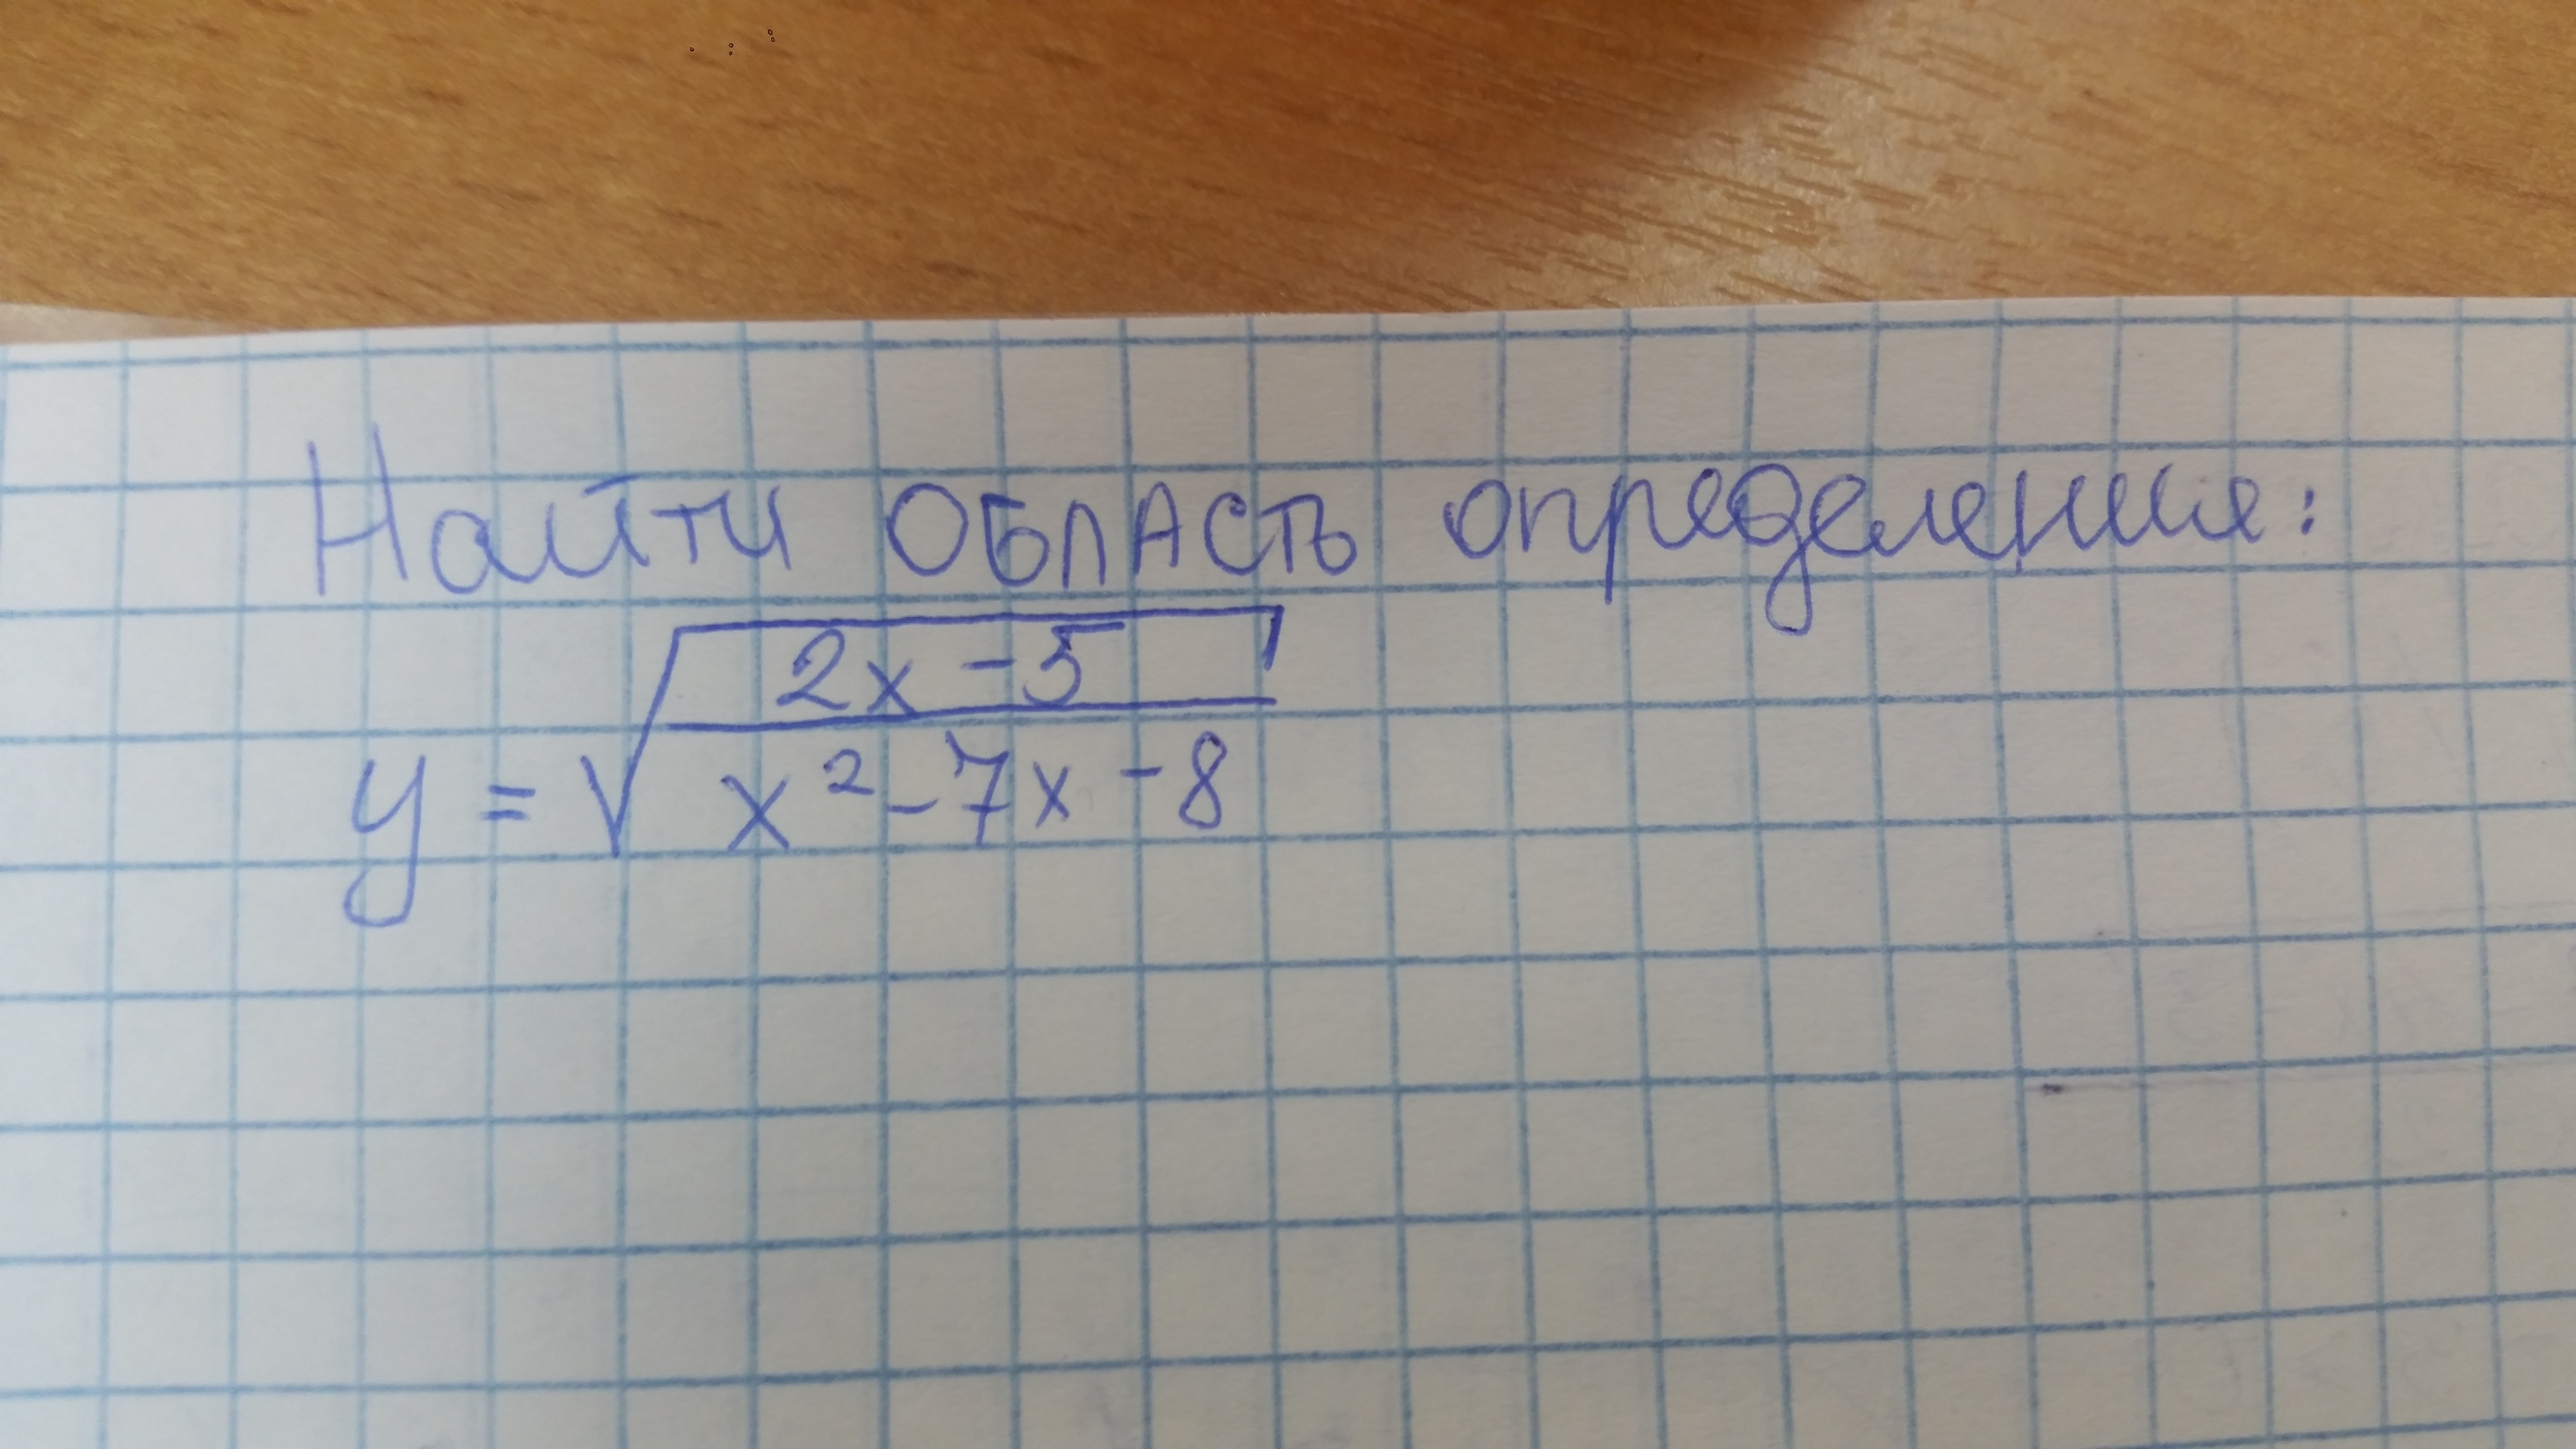 Найти область определения:
y = √((2x - 5)/(x² - 7x - 8))